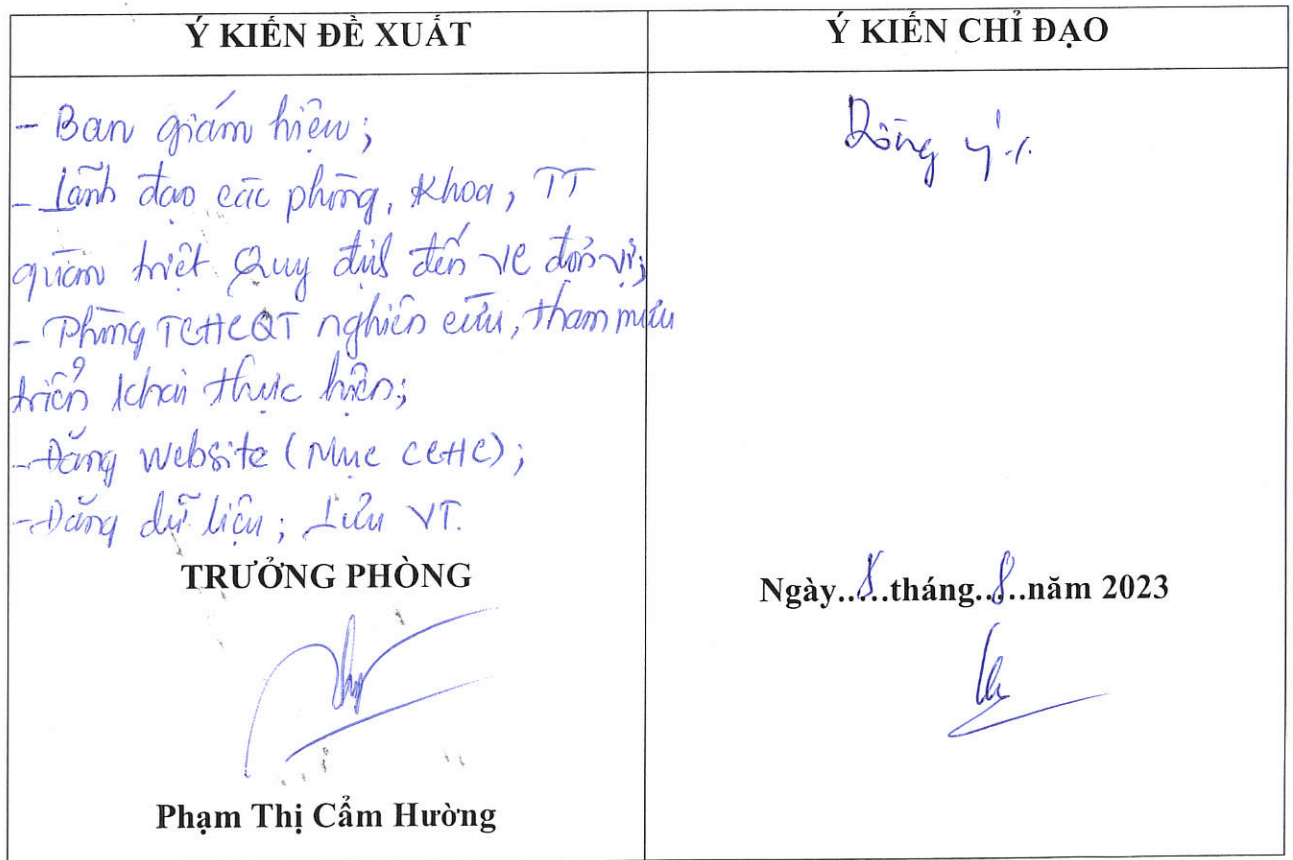 Ý KIẾN ĐỀ XUẤT
- Ban giám hiệu;
- Lãnh đạo các phòng, khoa, TT
quán triệt Quy định đến VC đơn vị;
- Phòng TCHCQT nghiên cứu, tham mưu
triển khai thực hiện;
- Đăng website (Mục CCHC);
- Đăng dữ liệu; Lưu VT.
TRƯỞNG PHÒNG
Phạm Thị Cẩm Hường
Ý KIẾN CHỈ ĐẠO
Đồng ý ./.
Ngày..8..tháng..8..năm 2023